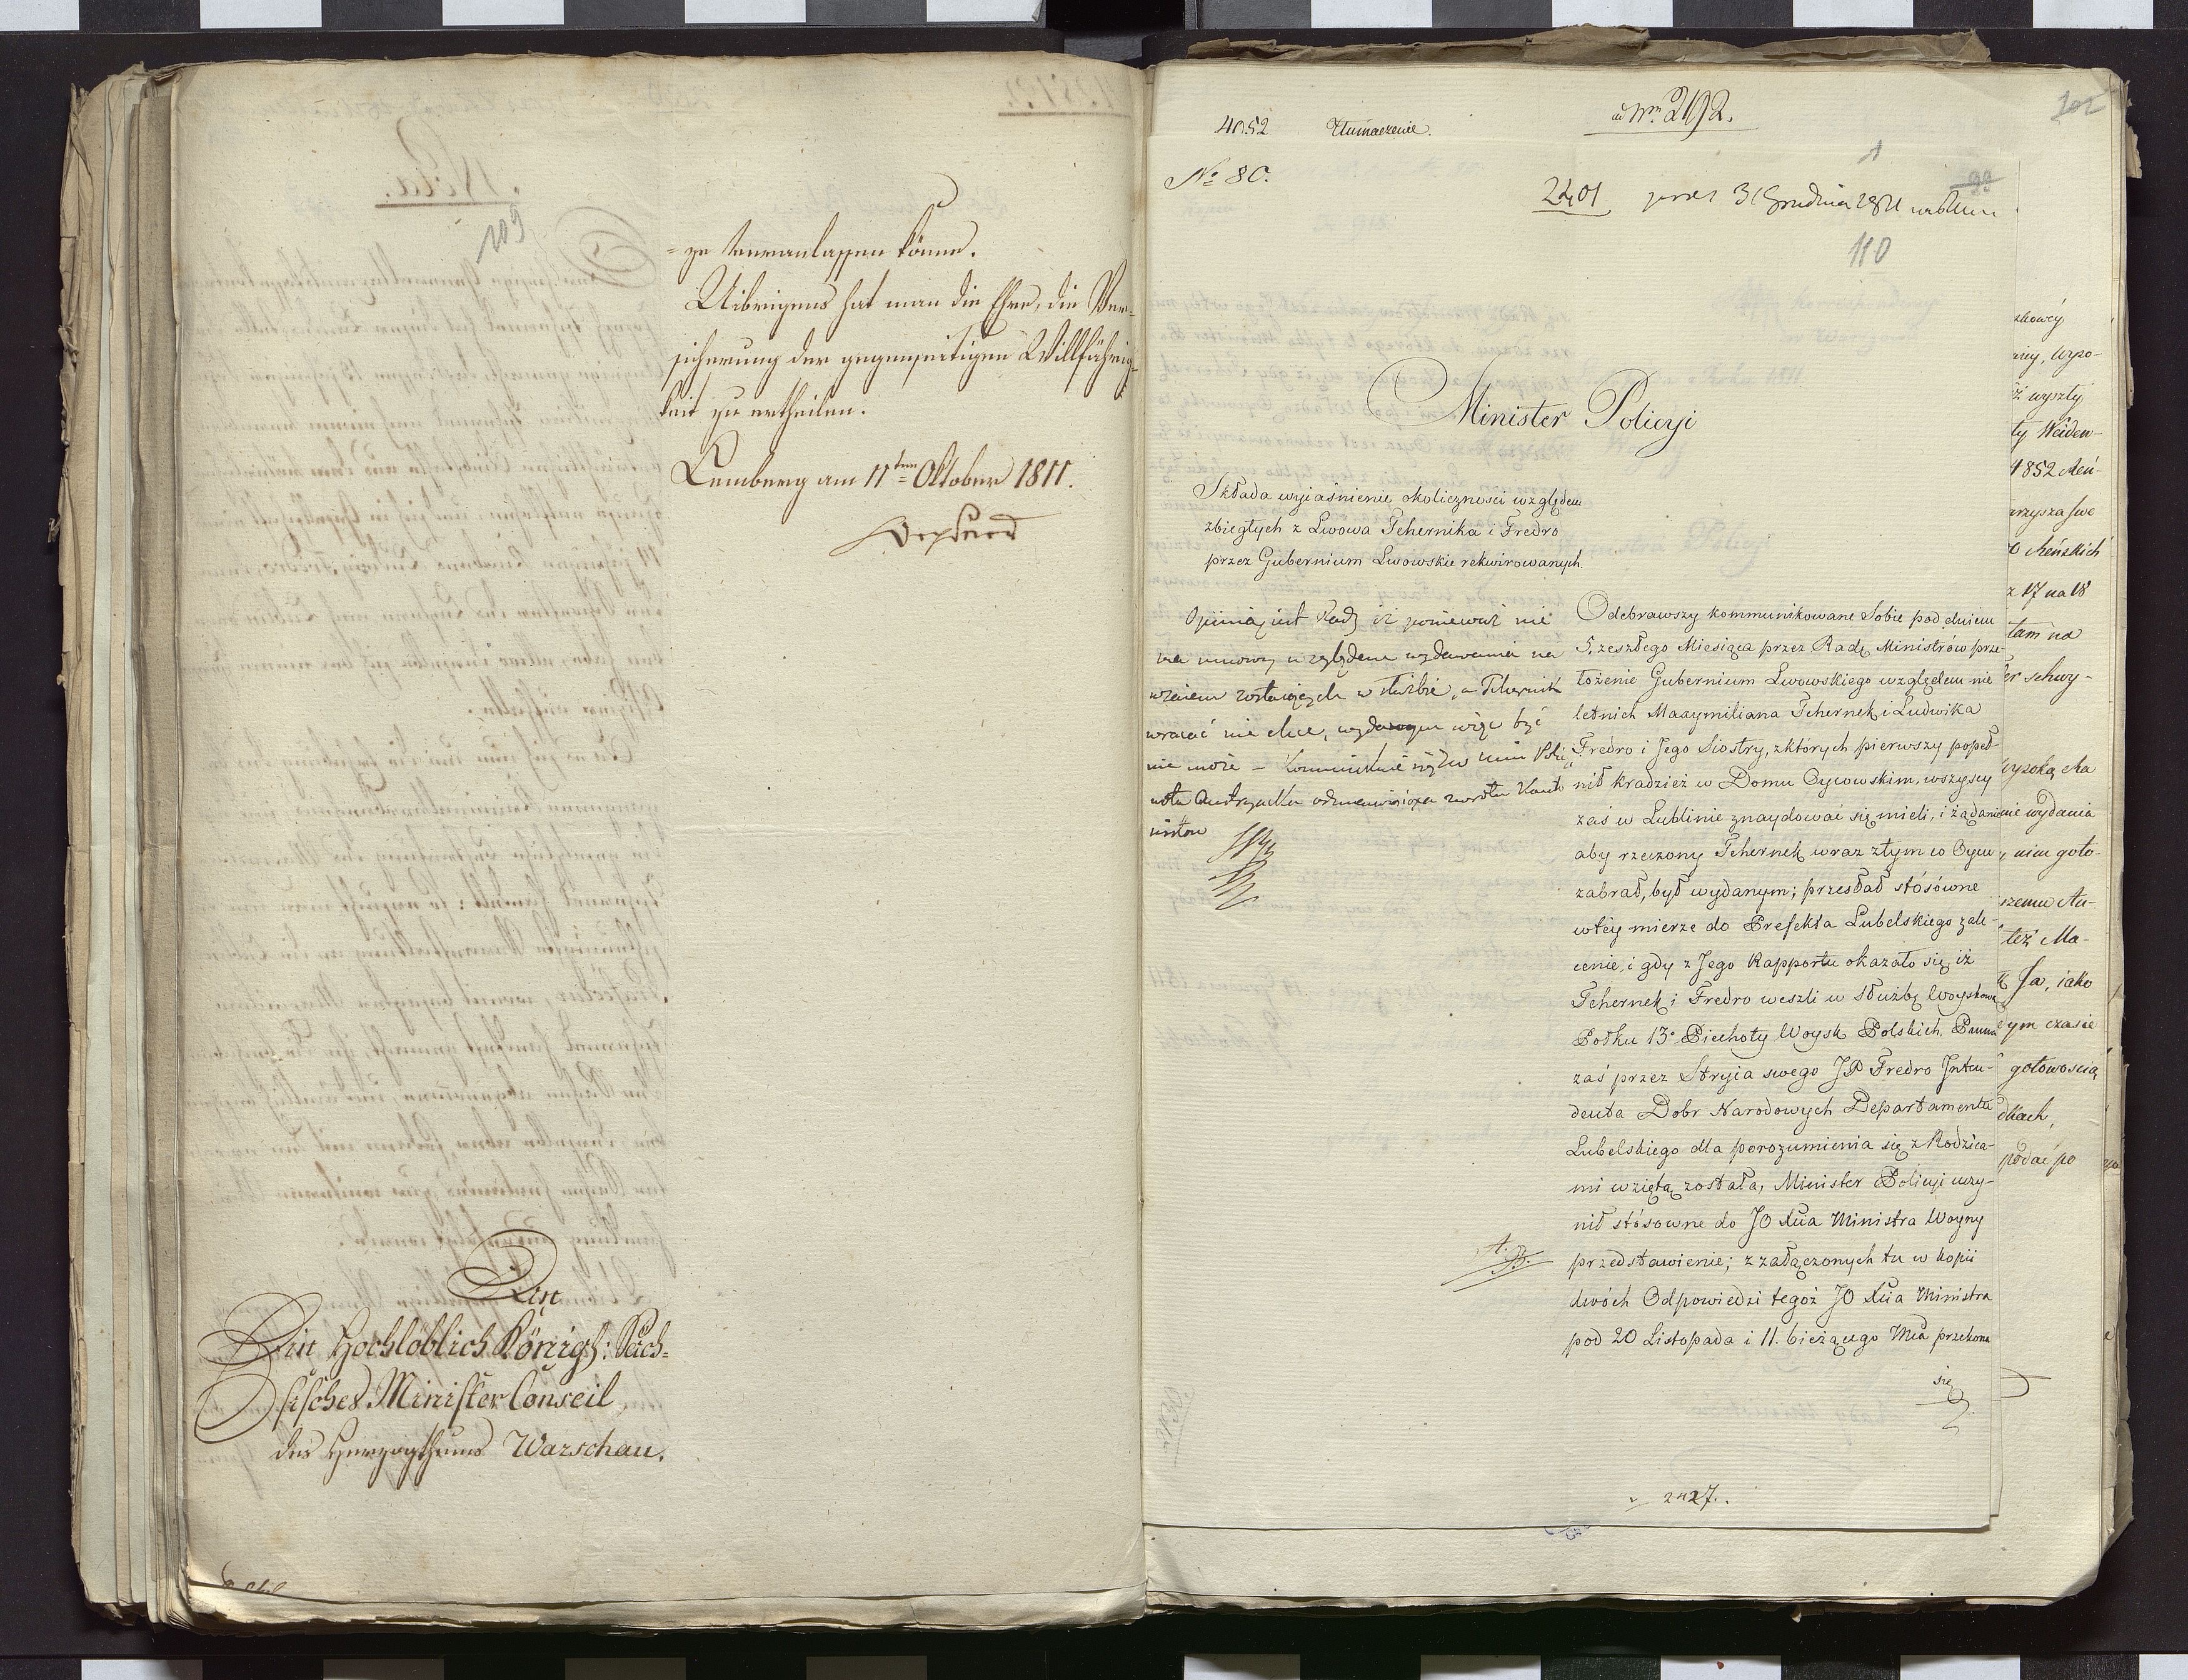 109
= ze veranlassen könne.
Uibrigens hat man die Ehre, die Ver-
sicherung der gegenseitigen Willfährig-
keit zu ertheilen.
Lemberg am 11ten Oktober 1811.
An
Ein Hochlöblich Königl: Säch-
sisches Minister Conseil
des Herzogthums Warschau.
4052 Tłumaczenie.
ad Nrm 2192.
No 80.
99
2401 31 Grudnia
110
Minister Policyi
Składa wyiaśnienie okoliczności względem
zbiegłych z Lwowa Tchernika i Fredro
przez Gubernium Lwowskie rekwirowanych.
Opinią jest Rady iż ponieważ nie
ma umowy względem wydawania na
wzaiem zostaiących w służbie, a Tchernik
wracać nie chce, wydanym więc być
nie może –
nota Austryacka
Odebrawszy kommunikowane Sobie pod dniem
5. zeszłego Miesiąca przez Radę Ministrów prze-
łożenie Gubernium Lwowskiego względem nie
letnich Maxymiliana Tchernek i Ludwika
Fredro i Jego Siostry, z których pierwszy popeł-
nił kradzież w Domu Oycowskim, wszyscy
zaś w Lublinie znaydować się mieli, i żądanie
aby rzeczony Tchernek wraz z tym co Oycu
zabrał, był wydanym; przesłał stósówne
w tey mierze do Prefekta Lubelskiego zale-
cenie, i gdy z Jego Rapportu okazało się, iż
Tchernek i Fredro weszli w służbę Woyskową
Połku 13o Piechoty Woysk Polskich, Panna
zaś przez Stryia swego JP Fredro Inten-
denta Dobr Narodowych Departamentu
Lubelskiego dla porozumienia się z Rodzica-
mi wziętą została, Minister Policyi uczy-
nił stósowne do JO Xcia Ministra Woyny
przedstawienie; z załączonych tu w kopii
A. B.
dwóch Odpowiedzi tegoż JO Xcia Ministra
pod 20 Listopada i 11. bieżącego Mca przekona
się
2427.
skowey
wyższty
ty Weiden-
1852 Reń-
Reńskich
z 17 na 18
tam na
schwy-
wysoka Ma
nie wydania
nim goto-
szemu Au-
też Ma-
Ja, iako
ym czasie
gotowością
dkach,
podać po